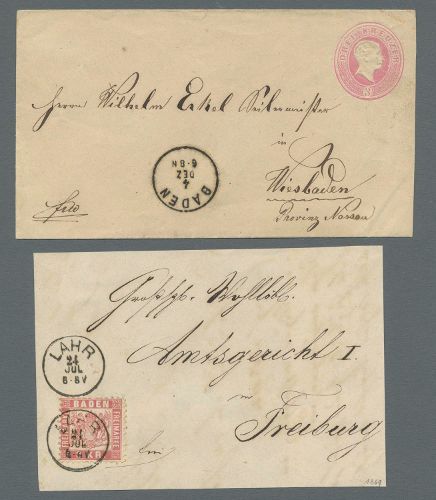 DREI KREUZER
Herrn Wilhelm Erkel Seilermeister
in
Wiesbaden
Provinz Nassau
frco
BADEN
4
DEZ
6-8N
Großhl. Wohllöbl.
Amtsgericht I.
Freiburg
frei
LAHR
24
JUL
6-8V
BADEN
FREIMARKE
LAHR
24
JUL
6-8V
1869